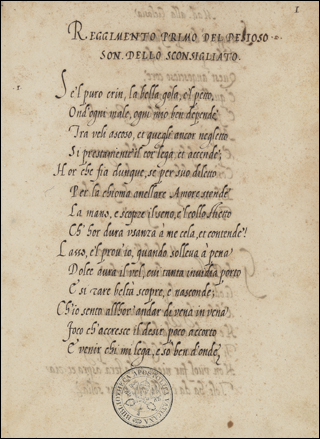 1
REGGIMENTO PRIMO DEL PETIOSO
SON. DELLO SCONSIGLIATO.
1
Se'l puro crin, la bella gola, e'l petto,
Ond'ogni male, ogni mio ben depende
Tra veli ascoso, et quegli ancor negletto
Si prestamente il cor lega, et accende;
Hor che fia dunque, se per suo diletto
Per la chioma anellare Amore stende
La mano, e scopre il seno, e'l collo schietto
Ch'hor dura usanza à me cela, et contende?
Lasso, e'l prouo io, quando solleua à pena
Dolce aura il vel, cui tanta inuidia porto
E si rare beltà scopre, e nasconde;
Ch'io sento allhor' andar di vena in vena
Foco ch'accresce il desir poco accorto
E venir chi mi lega, e so ben d'onde,
BIBLIOTHECA APOSTOLICA VATICANA